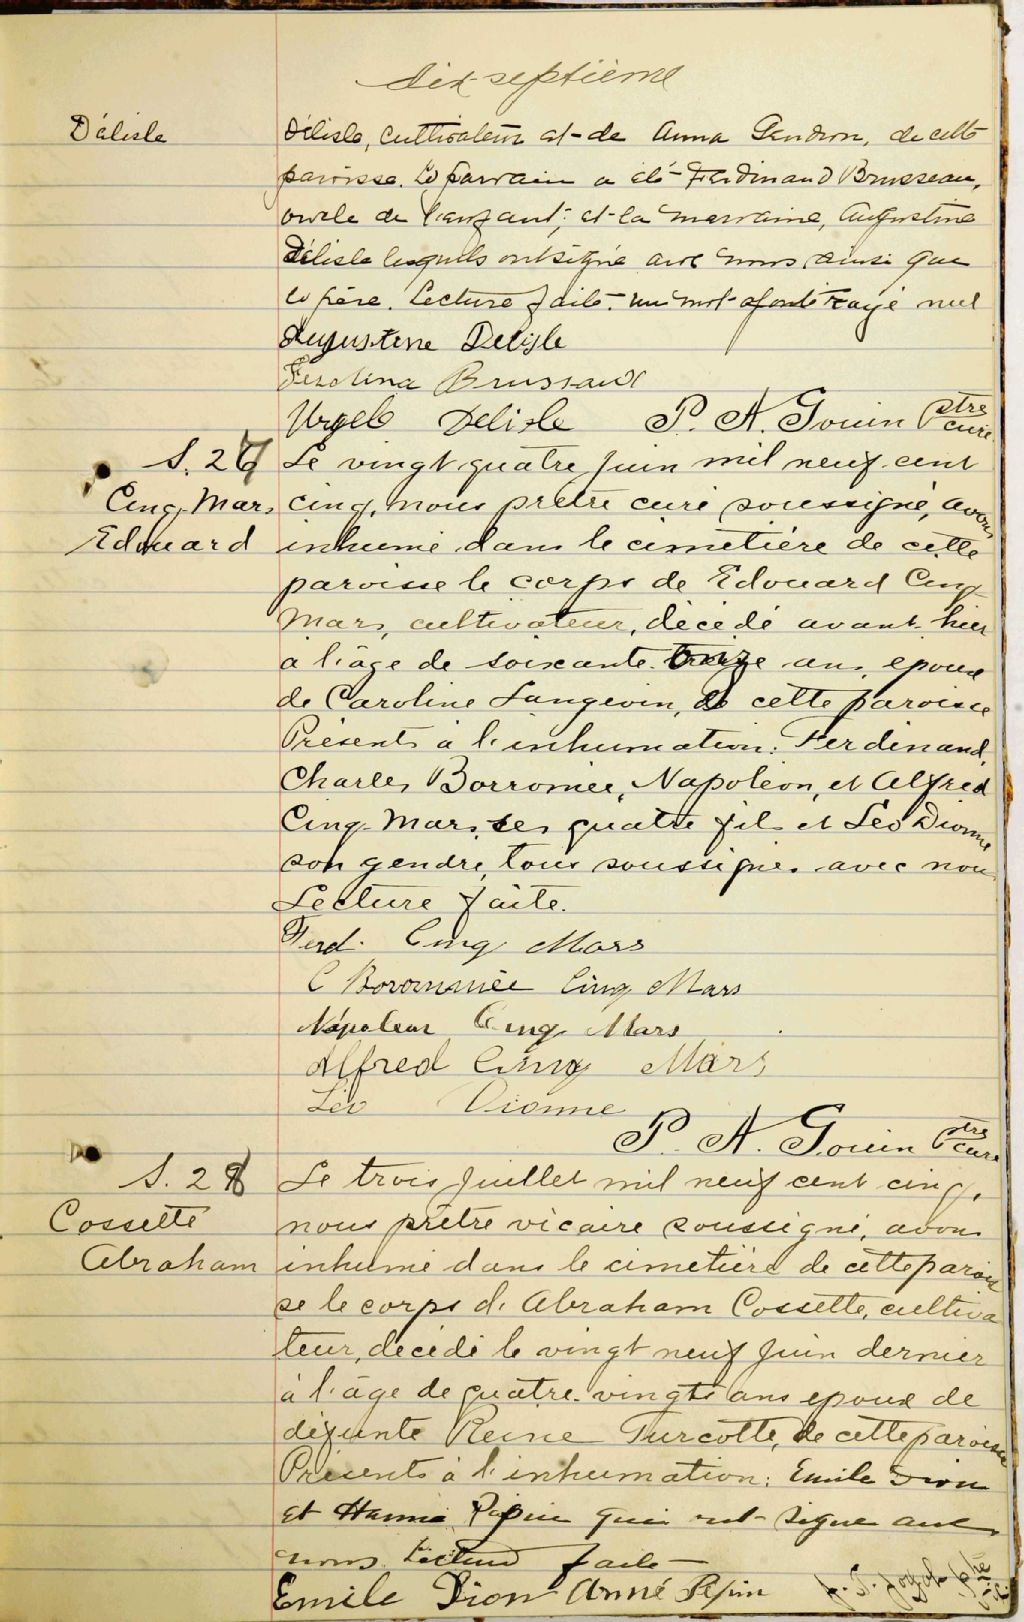 Dix-septième
Délisle
Délisle, cultivateur et de Anna Gendron, de cette
paroisse. Le parrain a été Ferdinand Brusseau,
oncle de l'enfant, et la marraine, Augustine
Délisle lesquels ont signé avec nous ainsi que
le père. Lecture faite. un mot rayé nul
Augustine Delisle
Brussaux
Urgele Delisle P. N. Gouin Ptre curé
S. 27
Cinq-Mars
Edouard
Le vingt quatre Juin mil neuf cent
cinq, nous prêtre curé soussigné, avons
inhumé dans le cimetière de cette
paroisse le corps de Edouard Cinq
Mars, cultivateur, décédé avant-hier
à l'âge de soixante- ans, epoux
de Caroline Langevin, de cette paroisse
Présents à l'inhumation: Ferdinand,
Charles Borromée, Napoléon, et Alfred
Cinq-Mars, ses quatre fils et Léo Dionne
son gendre, tous soussignés avec nous
Lecture faite.
Ferd. Cinq Mars
C Borommée Cinq Mars
Népoleon Cinq Mars
Alfred Cinq Mars
Léo Dionne
P. N. Gouin Ptre curé
S. 28
Cossette
Abraham
Le trois Juillet mil neuf cent cinq,
nous prêtre vicaire soussigné, avons
inhumé dans le cimetière de cette parois
se le corps d'Abraham Cossette, cultiva
teur, décédé le vingt neuf Juin dernier
à l'âge de quatre-vingts ans epoux de
défunte Reine Turcotte, de cette paroisse
Présents à l'inhumation: Emile Dion
et Pepin qui ont signé avec
nous Lecture faite
Emile Dion Anné Pepin